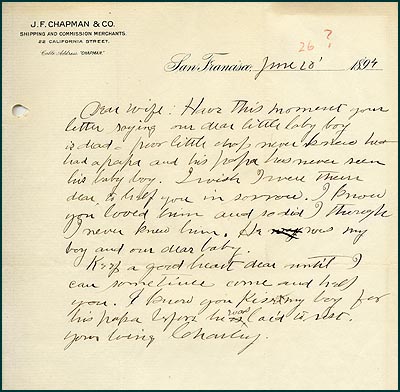 J. F. CHAPMAN & CO.
SHIPPING AND COMMISSION MERCHANTS.
22 CALIFORNIA STREET.
Cable Address "CHAPMAN."
26 ?
San Francisco, June 28' 1894
Dear Wife: Have this moment your
letter saying our dear little baby boy
is dead - poor little chap never knew he
had a papa and his papa has never seen
his baby boy. I wish I were there
dear to help you in sorrow. I know
you loved him and so did I though
I never knew him. He was my
boy and our dear baby.
Keep a good heart dear until I
can sometime come and help
you. I know you kissed my boy for
his papa before he was laid to rest.
Your loving Charley.